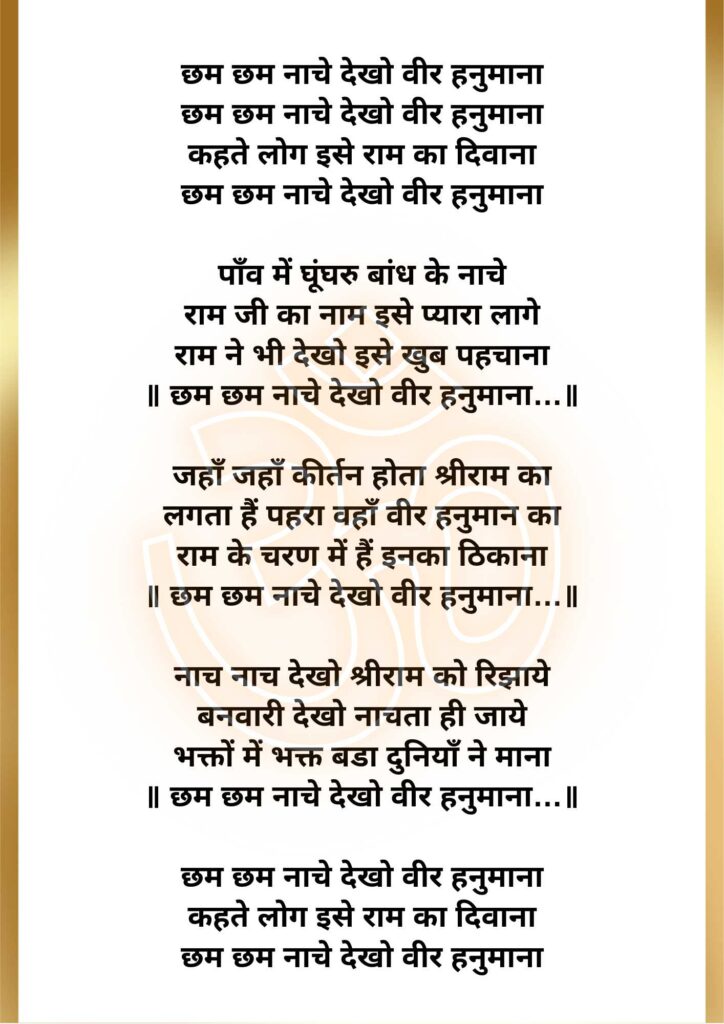 छम छम नाचे देखो वीर हनुमाना
छम छम नाचे देखो वीर हनुमाना
कहते लोग इसे राम का दिवाना
छम छम नाचे देखो वीर हनुमाना
पाँव में घूंघरु बांध के नाचे
राम जी का नाम इसे प्यारा लागे
राम ने भी देखो इसे खुब पहचाना
॥ छम छम नाचे देखो वीर हनुमाना...॥
जहाँ जहाँ कीर्तन होता श्रीराम का
लगता हैं पहरा वहाँ वीर हनुमान का
राम के चरण में हैं इनका ठिकाना
॥ छम छम नाचे देखो वीर हनुमाना...॥
नाच नाच देखो श्रीराम को रिझाये
बनवारी देखो नाचता ही जाये
भक्तों में भक्त बडा दुनियाँ ने माना
॥ छम छम नाचे देखो वीर हनुमाना...॥
छम छम नाचे देखो वीर हनुमाना
कहते लोग इसे राम का दिवाना
छम छम नाचे देखो वीर हनुमाना